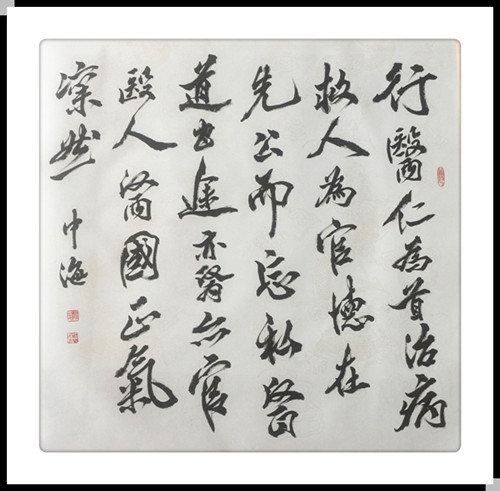 行醫仁為首治病
救人為官德在
先公而忘私醫
道途亦醫亦官
醫人醫國正氣
凜然 中海